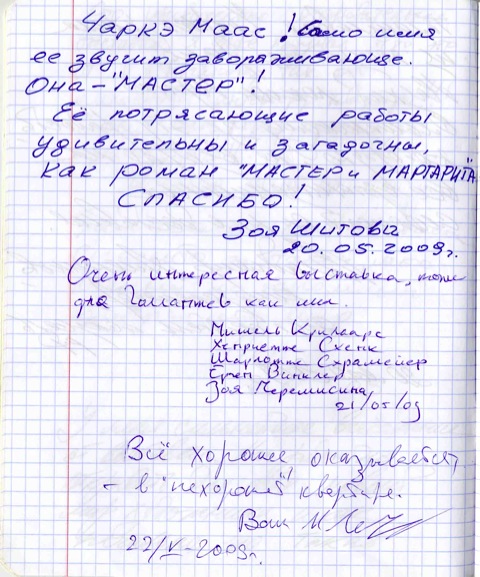 Чаркэ Маас! Само имя
ее звучит завораживающе.
Она-"МАСТЕР"!
Её потрясающие работы
удивительны и загадочны,
как роман "МАСТЕР и МАРГАРИТА"
СПАСИБО!
Зоя Шитова
20.05.2009г.
Очень интересная выставка, тоже
для как мы.
Мишель
Хенриетте Схенк
Шарлотте Схрамейер
Винклер
Зоя Черемисина
21/05/09
Всё хорошее оказывается,
- в "нехорошей" квартире.
Ваш
22/V-2009г.